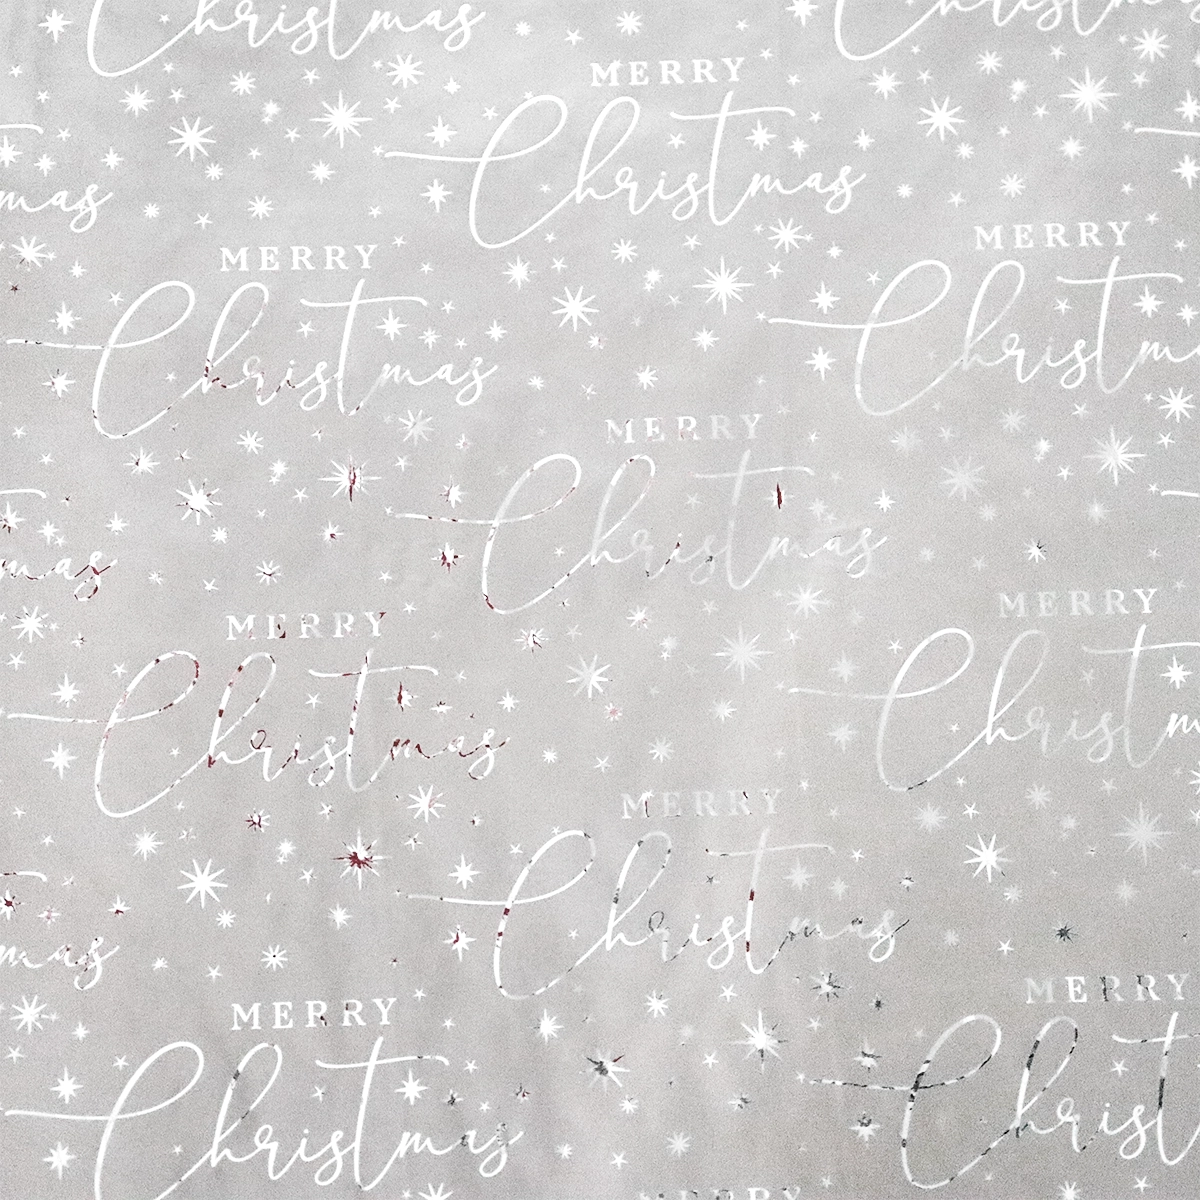 Christmas
Christmas
MERRY
Christmas
mas
MERRY
Christmas
MERRY
Christmas
MERRY
Christmas
mas
MERRY
Christmas
MERRY
Christmas
MERRY
Christmas
mas
MERRY
Christmas
MERRY
Christ
MERRY